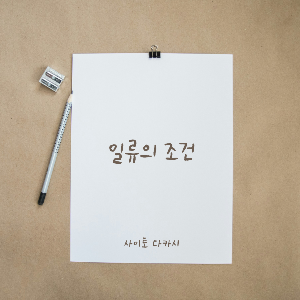 일류의 조건
사이토 다카시